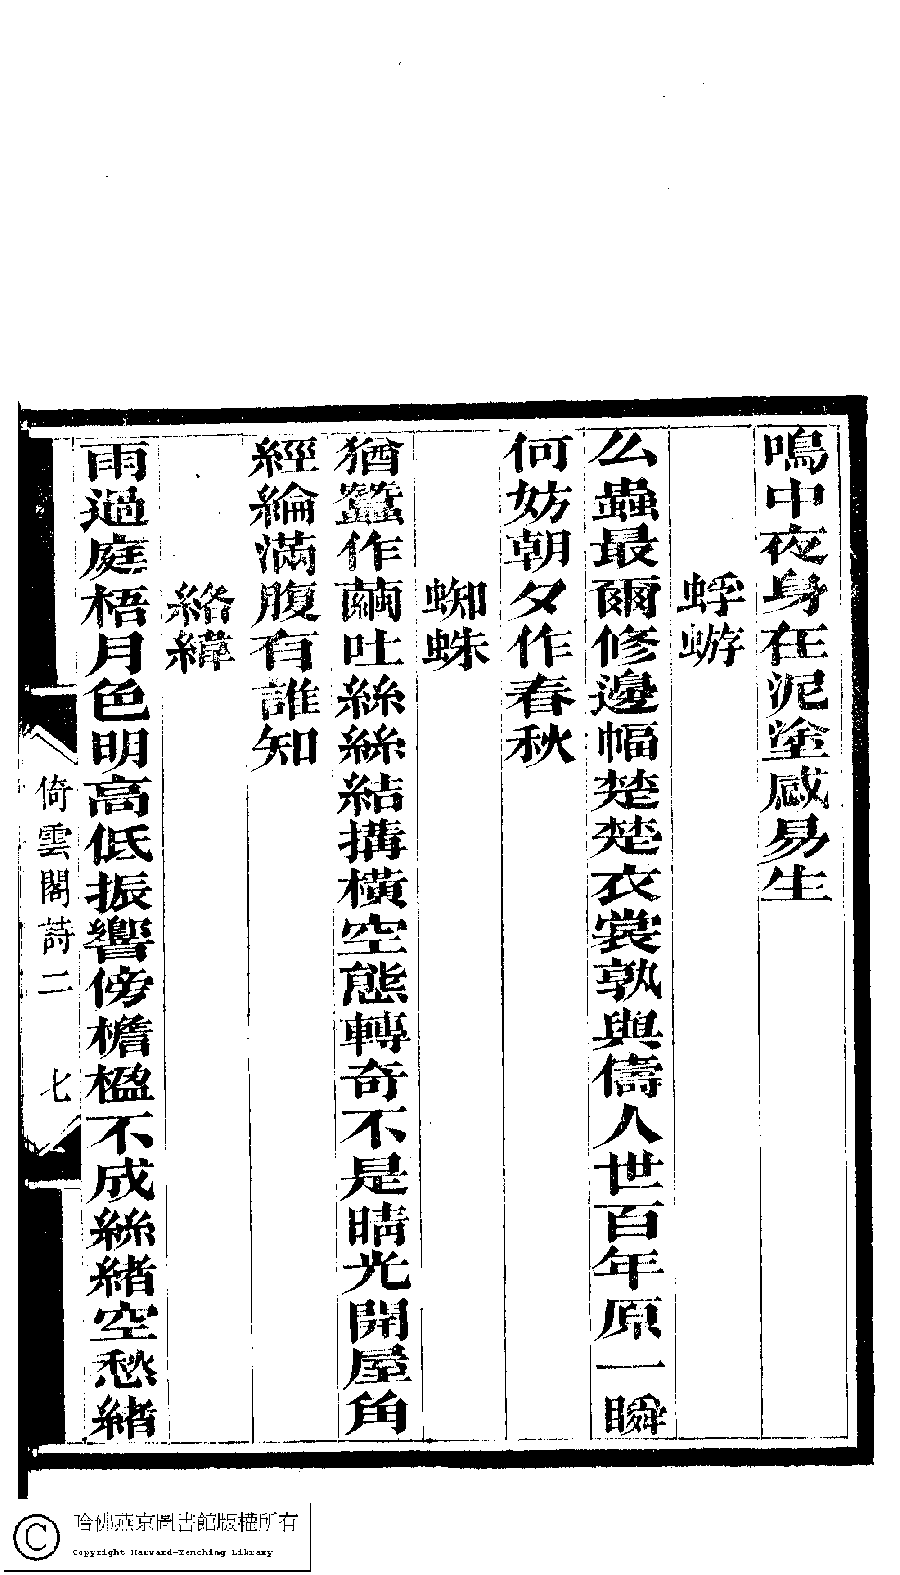 鳴中夜身在泥塗感易生
蜉蝣
么蟲最爾修邊幅楚楚衣裳孰與儔人世百年原一瞬
何妨朝夕作春秋
蜘蛛
猶蠶作繭吐絲絲結搆橫空態轉奇不是晴光開屋角
經綸滿腹有誰知
絡緯
雨過庭梧月色明高低振響傍檐楹不成絲緒空愁緒
倚雲閣詩二 七
哈佛燕京圖書館版權所有
Copyright Harvard-Yenching Library